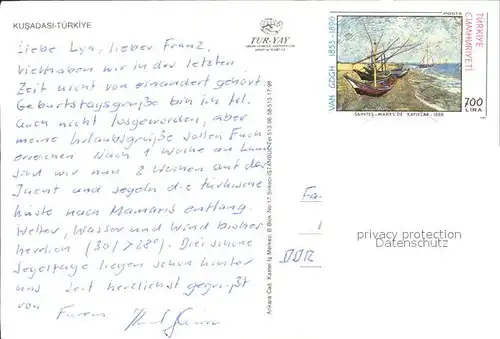 KUŞADASI-TÜRKİYE
Liebe Lya, lieber Franz,
viel haben wir in der letzten
Zeit nicht von einander gehört.
Geburtstagsgrüße bin ich tel.
auch nicht losgeworden, aber
meine Urlaubsgrüße sollen Euch
erreichen Nach 1 Woche an Land
sind wir nun 2 Wochen auf der
und segeln die türkische
Küste nach Mamaris entlang.
Wetter, Wasser und Wind bisher
herrlich (30/28°). Drei schöne
Segeltage liegen schon hinter
uns Seid herzlichst gegrüßt
von Euren
TUR-YAY
Ankara Cad. Kastel İş Merkez. B Blok No: 17 Sirkeci-İSTANBUL Tel: 513 06 58-513 17 98
VAN GOGH 1853-1890
POSTA
TÜRKİYE CUMHURİYETİ
700
LİRA
SAINTES-MARIES DE 1888
DDR
privacy protection
Datenschutz